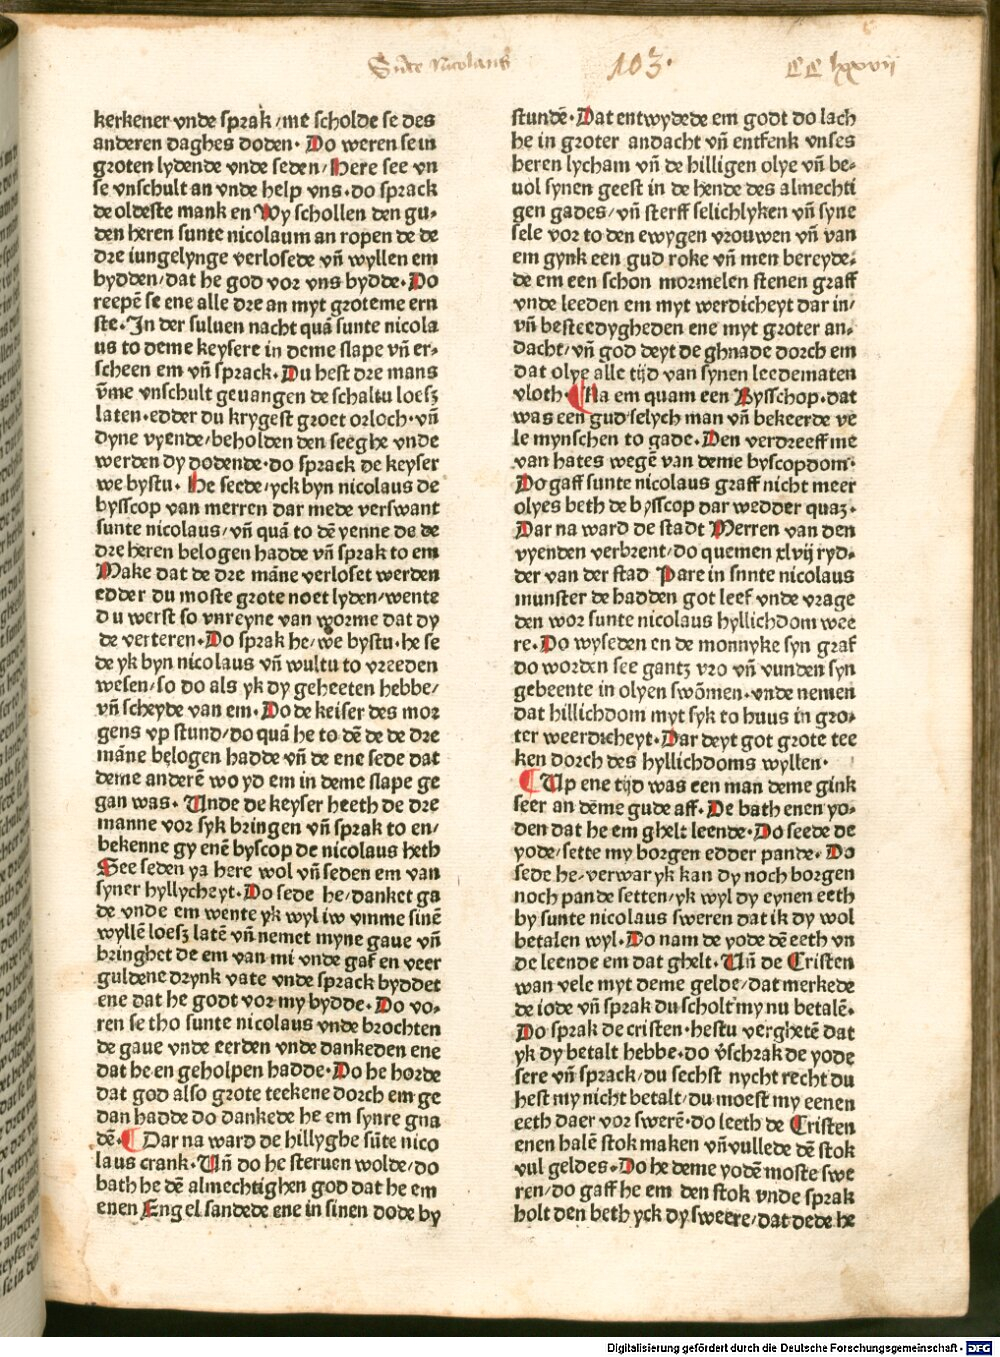 Sūte Nicolaus 103. CC lxxvii
kerkener vnde sprak/me scholde se des
anderen daghes doden. Do weren se in
groten lydende vnde seden/Here see vn
se vnschult an vnde help vns.do sprack
de oldeste mank en Wy schollen den gu-
den heren sunte nicolaum an ropen de de
dre iungelynge verlosede vn̄ wyllen em
bydden/dat he god vor vns bydde. Do
reepē se ene alle dre an myt groteme ern
ste.In der suluen nacht quā sunte nicola
us to deme keysere in deme slape vn̄ er-
scheen em vn̄ sprack. Du hest dre mans
v̄me vnschult geuangen de schaltu loesz
laten.edder du krygest groet orloch.vn̄
dyne vyende/beholden den seeghe vnde
werden dy dodende.do sprack de keyser
we bystu. He seede/yck byn nicolaus de
bysscop van merren dar mede verswant
sunte nicolaus/vn̄ quā to dē yenne de de
dre heren belogen hadde vn̄ sprak to em
Make dat de dre māne verloset werden
edder du moste grote noet lyden/wente
du werst so vnreyne van worme dat dy
de verteren. Do sprak he/we bystu.he se
de yk byn nicolaus vn̄ wultu to vreeden
wesen/so do als yk dy geheeten hebbe/
vn̄ scheyde van em. Do de keiser des mor
gens vp stund/do quā he to dē de de dre
māne belogen hadde vn̄ de ene sede dat
deme anderē wo yd em in deme slape ge
gan was. Unde de keyser heeth de dre
manne vor syk bringen vn̄ sprak to en/
bekenne gy enē byscop de nicolaus heth
See seden ya here wol vn̄ seden em van
syner hyllycheyt. Do sede he/danket ga
de vnde em wente yk wyl iw vmme sinē
wyllē loesz latē vn̄ nemet myne gaue vn̄
bringhet de em van mi vnde gaf en veer
guldene drynk vate vnde sprack byddet
ene dat he godt vor my bydde. Do vo-
ren se tho sunte nicolaus vnde brochten
de gaue vnde eerden vnde dankeden ene
dat he en geholpen hadde. Do he horde
dat god also grote teekene dorch em ge
dan hadde do dankede he em synre gna
dē. Dar na ward de hillyghe sūte nico
laus crank. Un̄ do he steruen wolde/do
bath he dē almechtighen god dat he em
enen Engel sandede ene in sinen dode by
stundē. Dat entwydede em godt do lach
he in groter andacht vn̄ entfenk vnses
heren lycham vn̄ de hilligen olye vn̄ be-
uol synen geest in de hende des almechti
gen gades/vn̄ sterff selichlyken vn̄ syne
sele vor to den ewygen vrouwen vn̄ van
em gynk een gud roke vn̄ men bereyde-
de em een schon mormelen stenen graff
vnde leeden em myt werdicheyt dar in/
vn̄ besteedygheden ene myt groter an-
dacht/vn̄ god deyt de ghnade dorch em
dat olye alle tijd van synen leedematen
vloth. Na em quam een Bysschop.dat
was een gud selych man vn̄ bekeerde ve
le mynschen to gade. Den verdreeff me
van hates wegē van deme byscopdom.
Do gaff sunte nicolaus graff nicht meer
olyes beth de bysscop dar wedder quaz.
Dar na ward de stadt Merren van den
vyenden verbrent/do quemen xlvij ryd-
der van der stad Pare in snnte nicolaus
munster de hadden got leef vnde vrage
den wor sunte nicolaus hyllichdom wee
re. Do wyseden en de monnyke syn graf
do worden see gantz vro vn̄ vunden syn
gebeente in olyen swōmen.vnde nemen
dat hillichdom myt syk to huus in gro-
ter weerdicheyt. Dar deyt got grote tee
ken dorch des hyllichdoms wyllen.
Up ene tijd was een man deme gink
seer an dēme gude aff. De bath enen yo-
den dat he em ghelt leende. Do seede de
yode/sette my borgen edder pande. Do
sede he.verwar yk kan dy noch borgen
noch pande setten/yk wyl dy eynen eeth
by sunte nicolaus sweren dat ik dy wol
betalen wyl. Do nam de yode dē eeth vn
de leende em dat ghelt. Un̄ de Cristen
wan vele myt deme gelde/dat merkede
de iode vn̄ sprak du scholt my nu betalē.
Do sprak de cristen.hestu verghetē dat
yk dy betalt hebbe.do v̄schrak de yode
sere vn̄ sprack/du sechst nycht recht du
hest my nicht betalt/du moest my eenen
eeth daer vor swerē.do leeth de Cristen
enen halē stok maken vn̄ vullede dē stok
vul geldes. Do he deme yodē moste swe
ren/do gaff he em den stok vnde sprak
holt den beth yck dy sweere/dat dede he
Digitalisierung gefördert durch die Deutsche Forschungsgemeinschaft - DFG